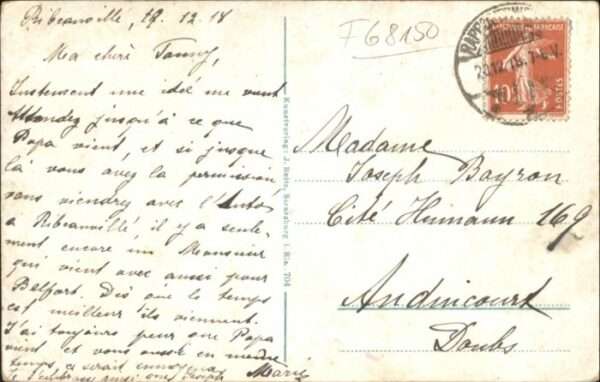 Ribeauvillé, 19.12.18
F68150
Ma chère Fanny,
Justement une idée me vient
Attendez jusqu'à ce que
Papa vient, et si jusque
là vous avez la permission
vous viendrez avec l'Auto
a Ribeauvillé, il y a seule-
ment encore un Monsieur
qui vient avec aussi pour
Belfort. Dis que le temps
est meilleur ils viennent.
J'ai toujours peur que Papa
vient et vous en même
temps, ce serait
Je aussi que
Marie
Kunstverlag: J. Strassburg i. Els. 704
20.12.18. 7-8 V.
10
POSTES
Madame
Joseph Bayron
Cité Humann 169
Audincourt
Doubs